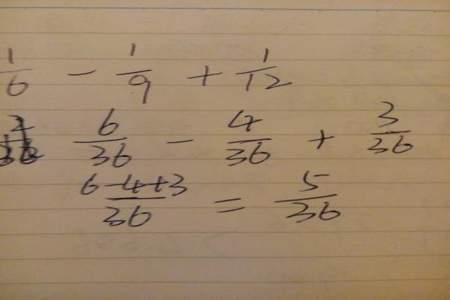 1/6 - 1/9 + 1/12
6/36 - 4/36 + 3/36
6-4+3/36 = 5/36